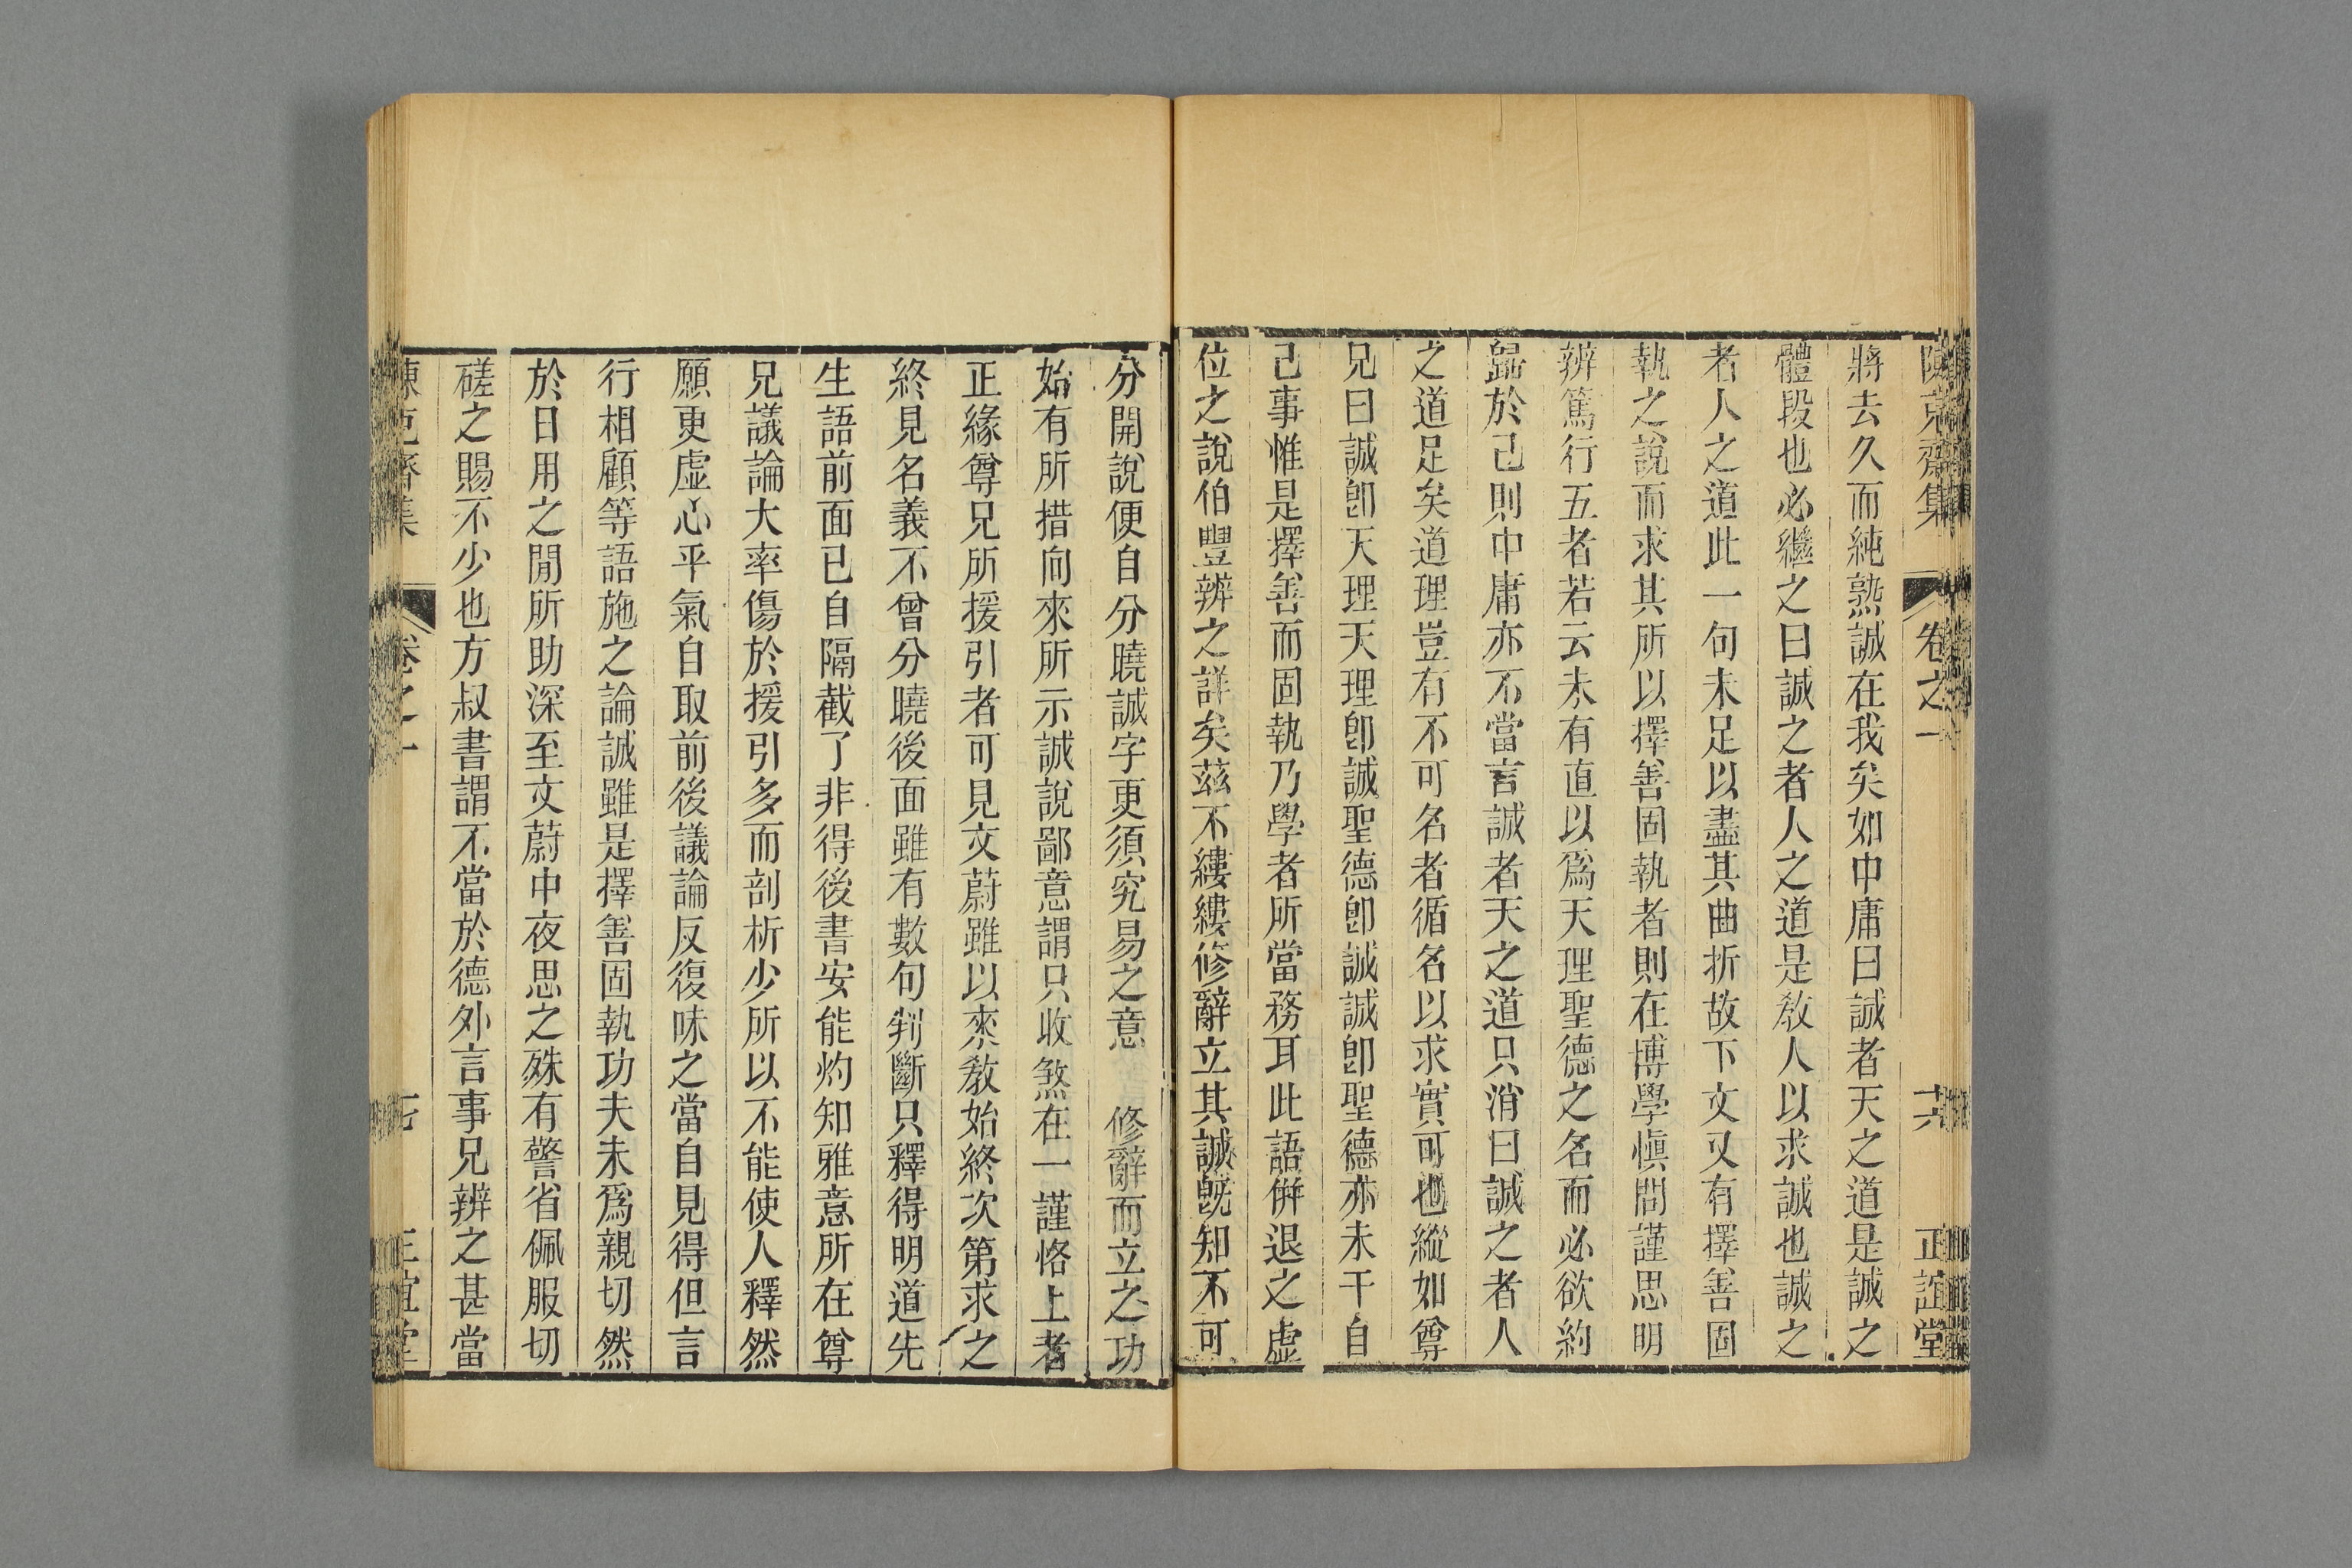 陳克齋集 卷之一 十六 正誼堂
將去久而純熟誠在我矣如中庸曰誠者天之道是誠之
體段也必繼之曰誠之者人之道是敎人以求誠也誠之
者人之道此一句未足以盡其曲折故下文又有擇善固
執之說而求其所以擇善固執者則在博學愼問謹思明
辨篤行五者若云未有直以爲天理聖德之名而必欲約
歸於己則中庸亦不當言誠者天之道只消曰誠之者人
之道足矣道理豈有不可名者循名以求實可也縱如尊
兄曰誠卽天理天理卽誠聖德卽誠誠卽聖德亦未干自
己事惟是擇善而固執乃學者所當務耳此語倂退之虛
位之說伯豐辨之詳矣茲不縷縷修辭立其誠旣知不可
分開說便自分曉誠字更須究易之意 修辭而立之功
始有所措向來所示誠說鄙意謂只收煞在一謹恪上者
正緣尊兄所援引者可見文蔚雖以來敎始終次第求之
終見名義不曾分曉後面雖有數句判斷只釋得明道先
生語前面已自隔截了非得後書安能灼知雅意所在尊
兄議論大率傷於援引多而剖析少所以不能使人釋然
願更虛心平氣自取前後議論反復味之當自見得但言
行相顧等語施之論誠雖是擇善固執功夫未爲親切然
於日用之閒所助深至文蔚中夜思之殊有警省佩服切
磋之賜不少也方叔書謂不當於德外言事兄辨之甚當
陳克齋集 卷之一 正誼堂